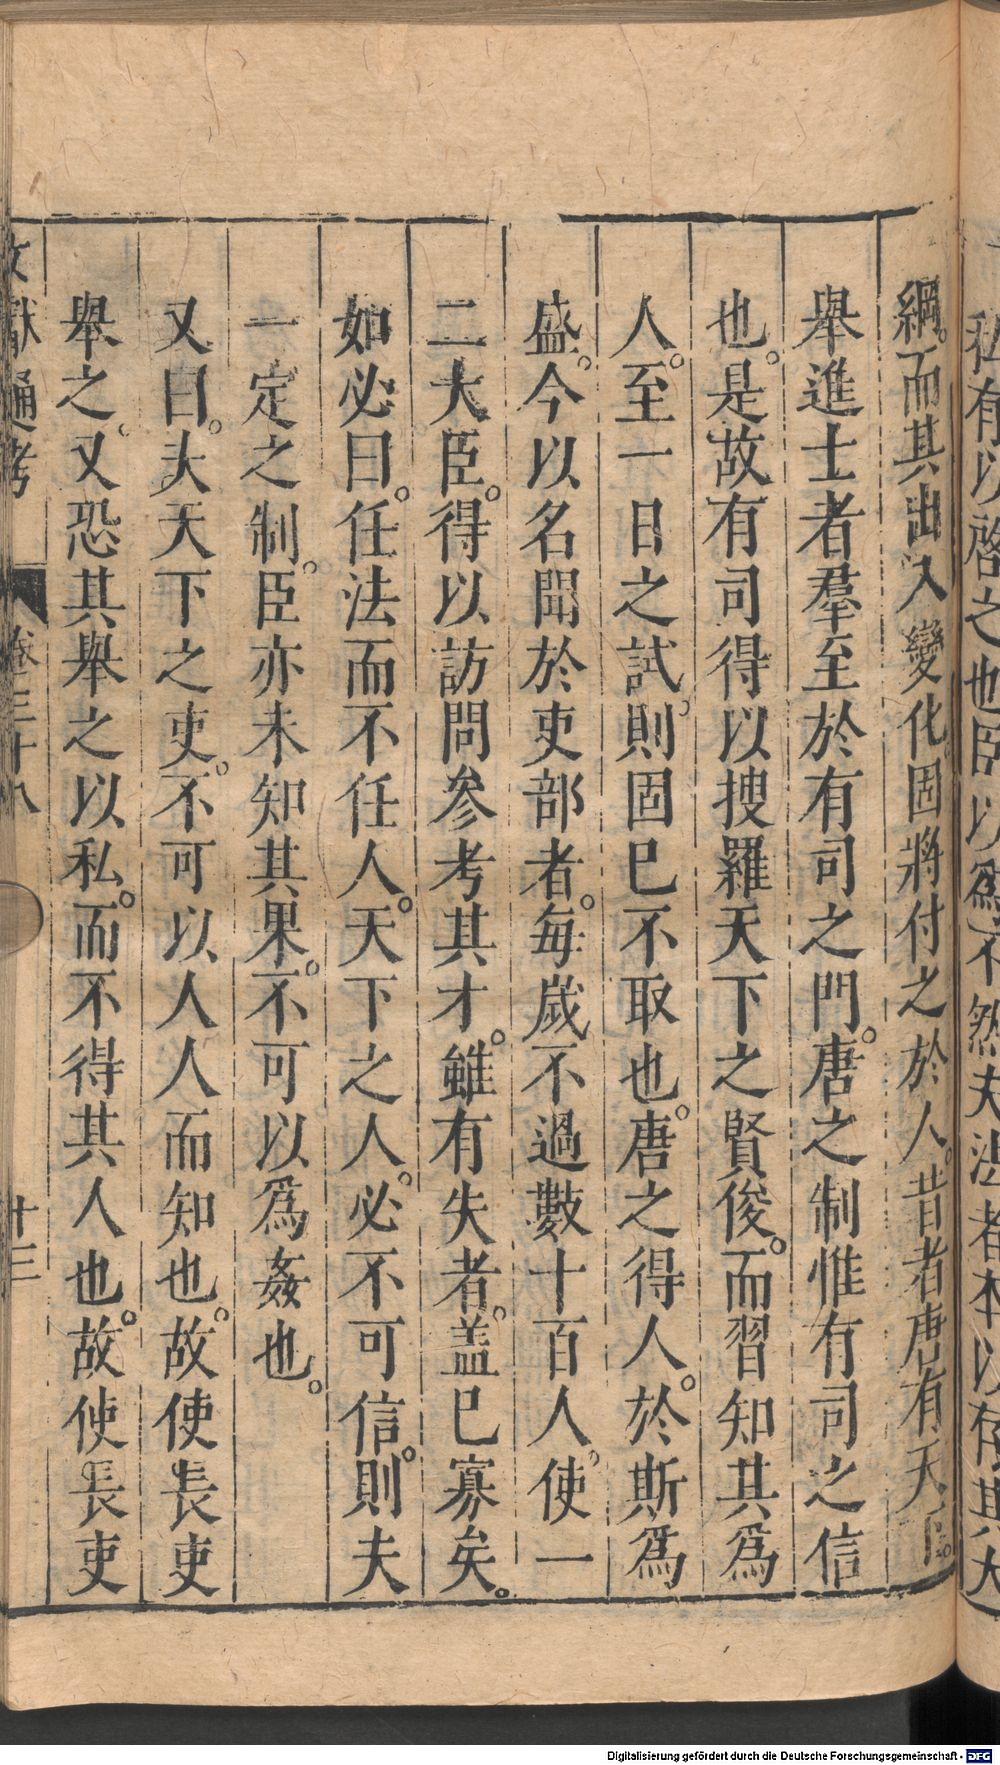 私有以啓之也臣以爲不然夫法者本以存其大
綱。而其出入變化。固將付之於人。昔者唐有天下。
舉進士者羣至於有司之門。唐之制惟有司之信
也。是故有司得以搜羅天下之賢俊。而習知其爲
人。至一日之試。則固已不取也。唐之得人。於斯爲
盛。今以名聞於吏部者。每歲不過數十百人。使一
二大臣。得以訪問參考其才。雖有失者。盖已寡矣。
如必曰。任法而不任人。天下之人。必不可信。則夫
一定之制。臣亦未知其果。不可以爲姦也。
又曰。夫天下之吏。不可以人人而知也。故使長吏
舉之。又恐其舉之以私。而不得其人也。故使長吏
文獻通考 卷三十八 十三
Digitalisierung gefördert durch die Deutsche Forschungsgemeinschaft - DFG